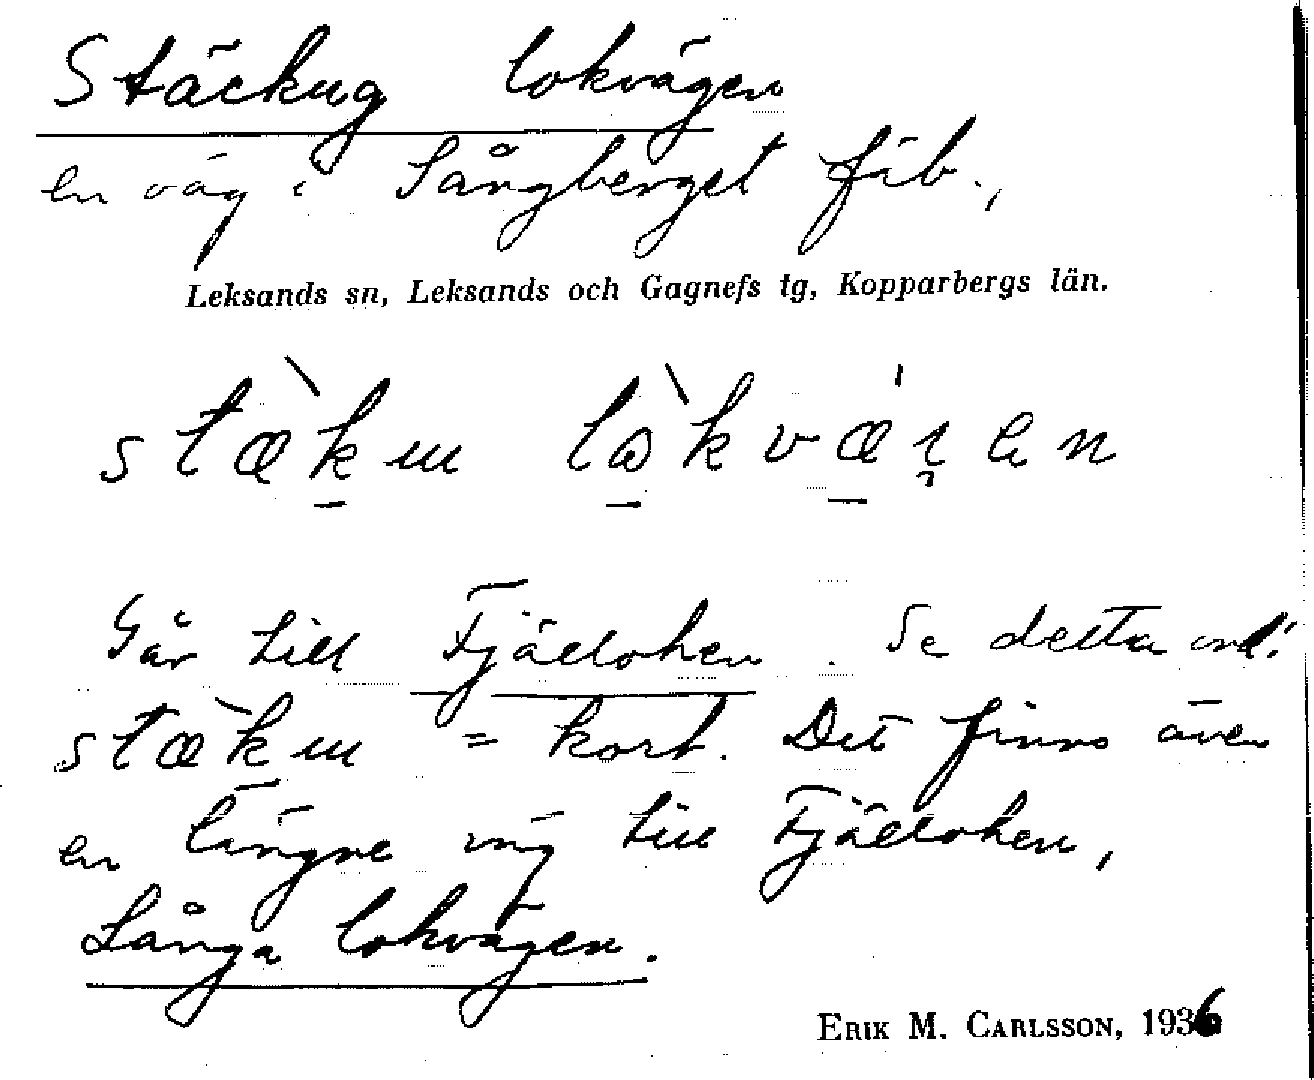 Stäckug lokvägen
en väg i Långberget fäb.,
Leksands sn, Leksands och Gagnefs tg, Kopparbergs län.
stæ̀km lòkvæ̍ɿen
Går till Fjällohen. Se detta ord!
stæ̀km = kort. Det finns även
en längre väg till Fjällohen,
Långa lokvägen.
ERIK M. CARLSSON, 1936